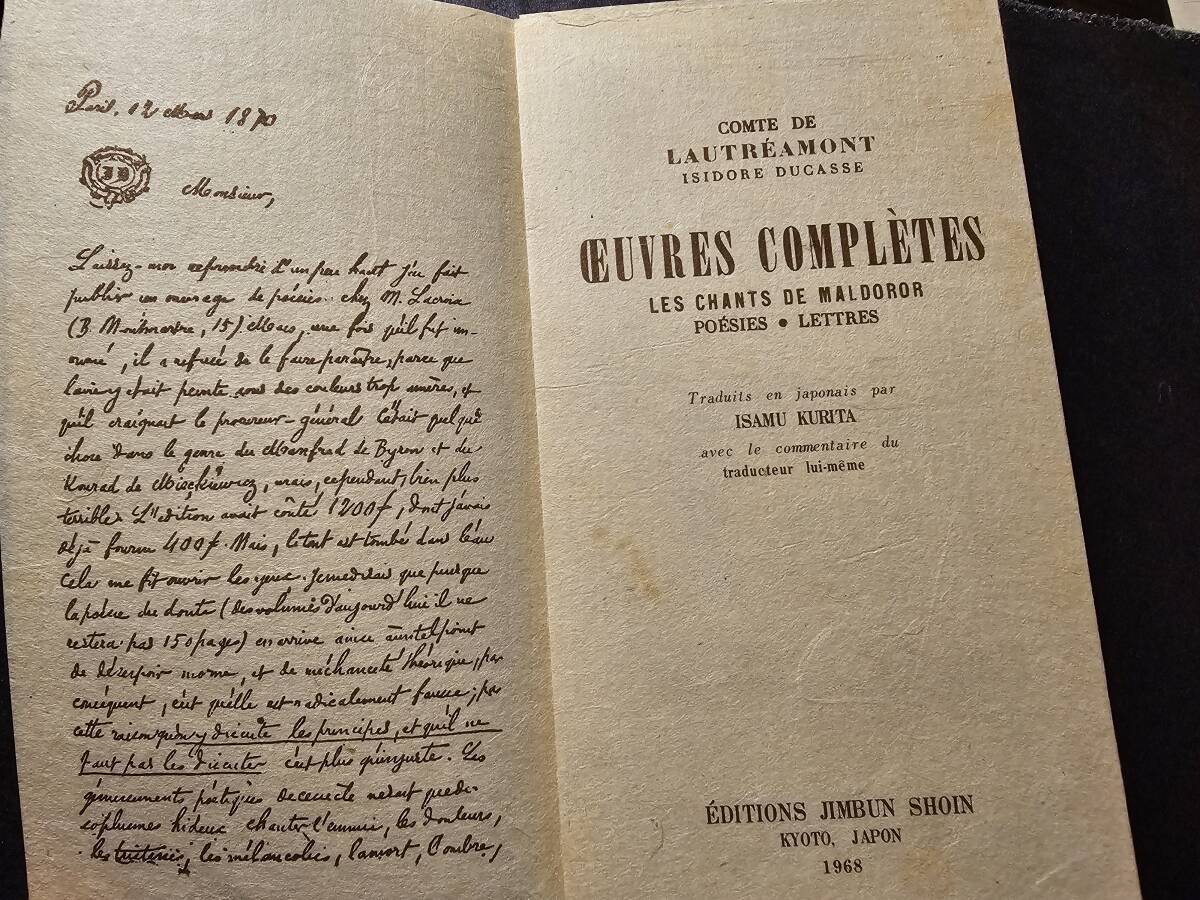 Paris, 12 Mars 1870
JD
Monsieur,
Laissez-moi reprendre d'un peu haut J'ai fait
publier un ouvrage de poésies chez M. Lacroix
(B. Montmartre, 15) Mais, une fois qu'il fut im-
primé, il a refusé de le faire paraître, parce que
la vie y était peinte sous des couleurs trop amères, et
qu'il craignait le procureur-général C'était quelque
chose dans le genre du Manfred de Byron et du
Konrad de Mickiewicz, mais, cependant, bien plus
terrible. L'édition avait coûté 1200f, dont j'avais
déjà fourni 400f. Mais, le tout est tombé dans l'eau
Cela me fit ouvrir les yeux. Je me disais que puisque
la poésie du doute (des volumes d'aujourd'hui il ne
restera pas 150 pages) en arrive ainsi à un tel point
de désespoir morne, et de méchanceté théorique, par
conséquent, c'est qu'elle est radicalement fausse; par
cette raison qu'on y discute les principes, et qu'il ne
faut pas les discuter c'est plus qu'injuste. Les
gémissements poétiques de ce siècle ne sont que des
sophismes hideux Chanter l'ennui, les douleurs,
les tristesses, les mélancolies, la mort, l'ombre,
COMTE DE
LAUTRÉAMONT
ISIDORE DUCASSE
ŒUVRES COMPLÈTES
LES CHANTS DE MALDOROR
POÉSIES • LETTRES
Traduits en japonais par
ISAMU KURITA
avec le commentaire du
traducteur lui-même
ÉDITIONS JIMBUN SHOIN
KYOTO, JAPON
1968